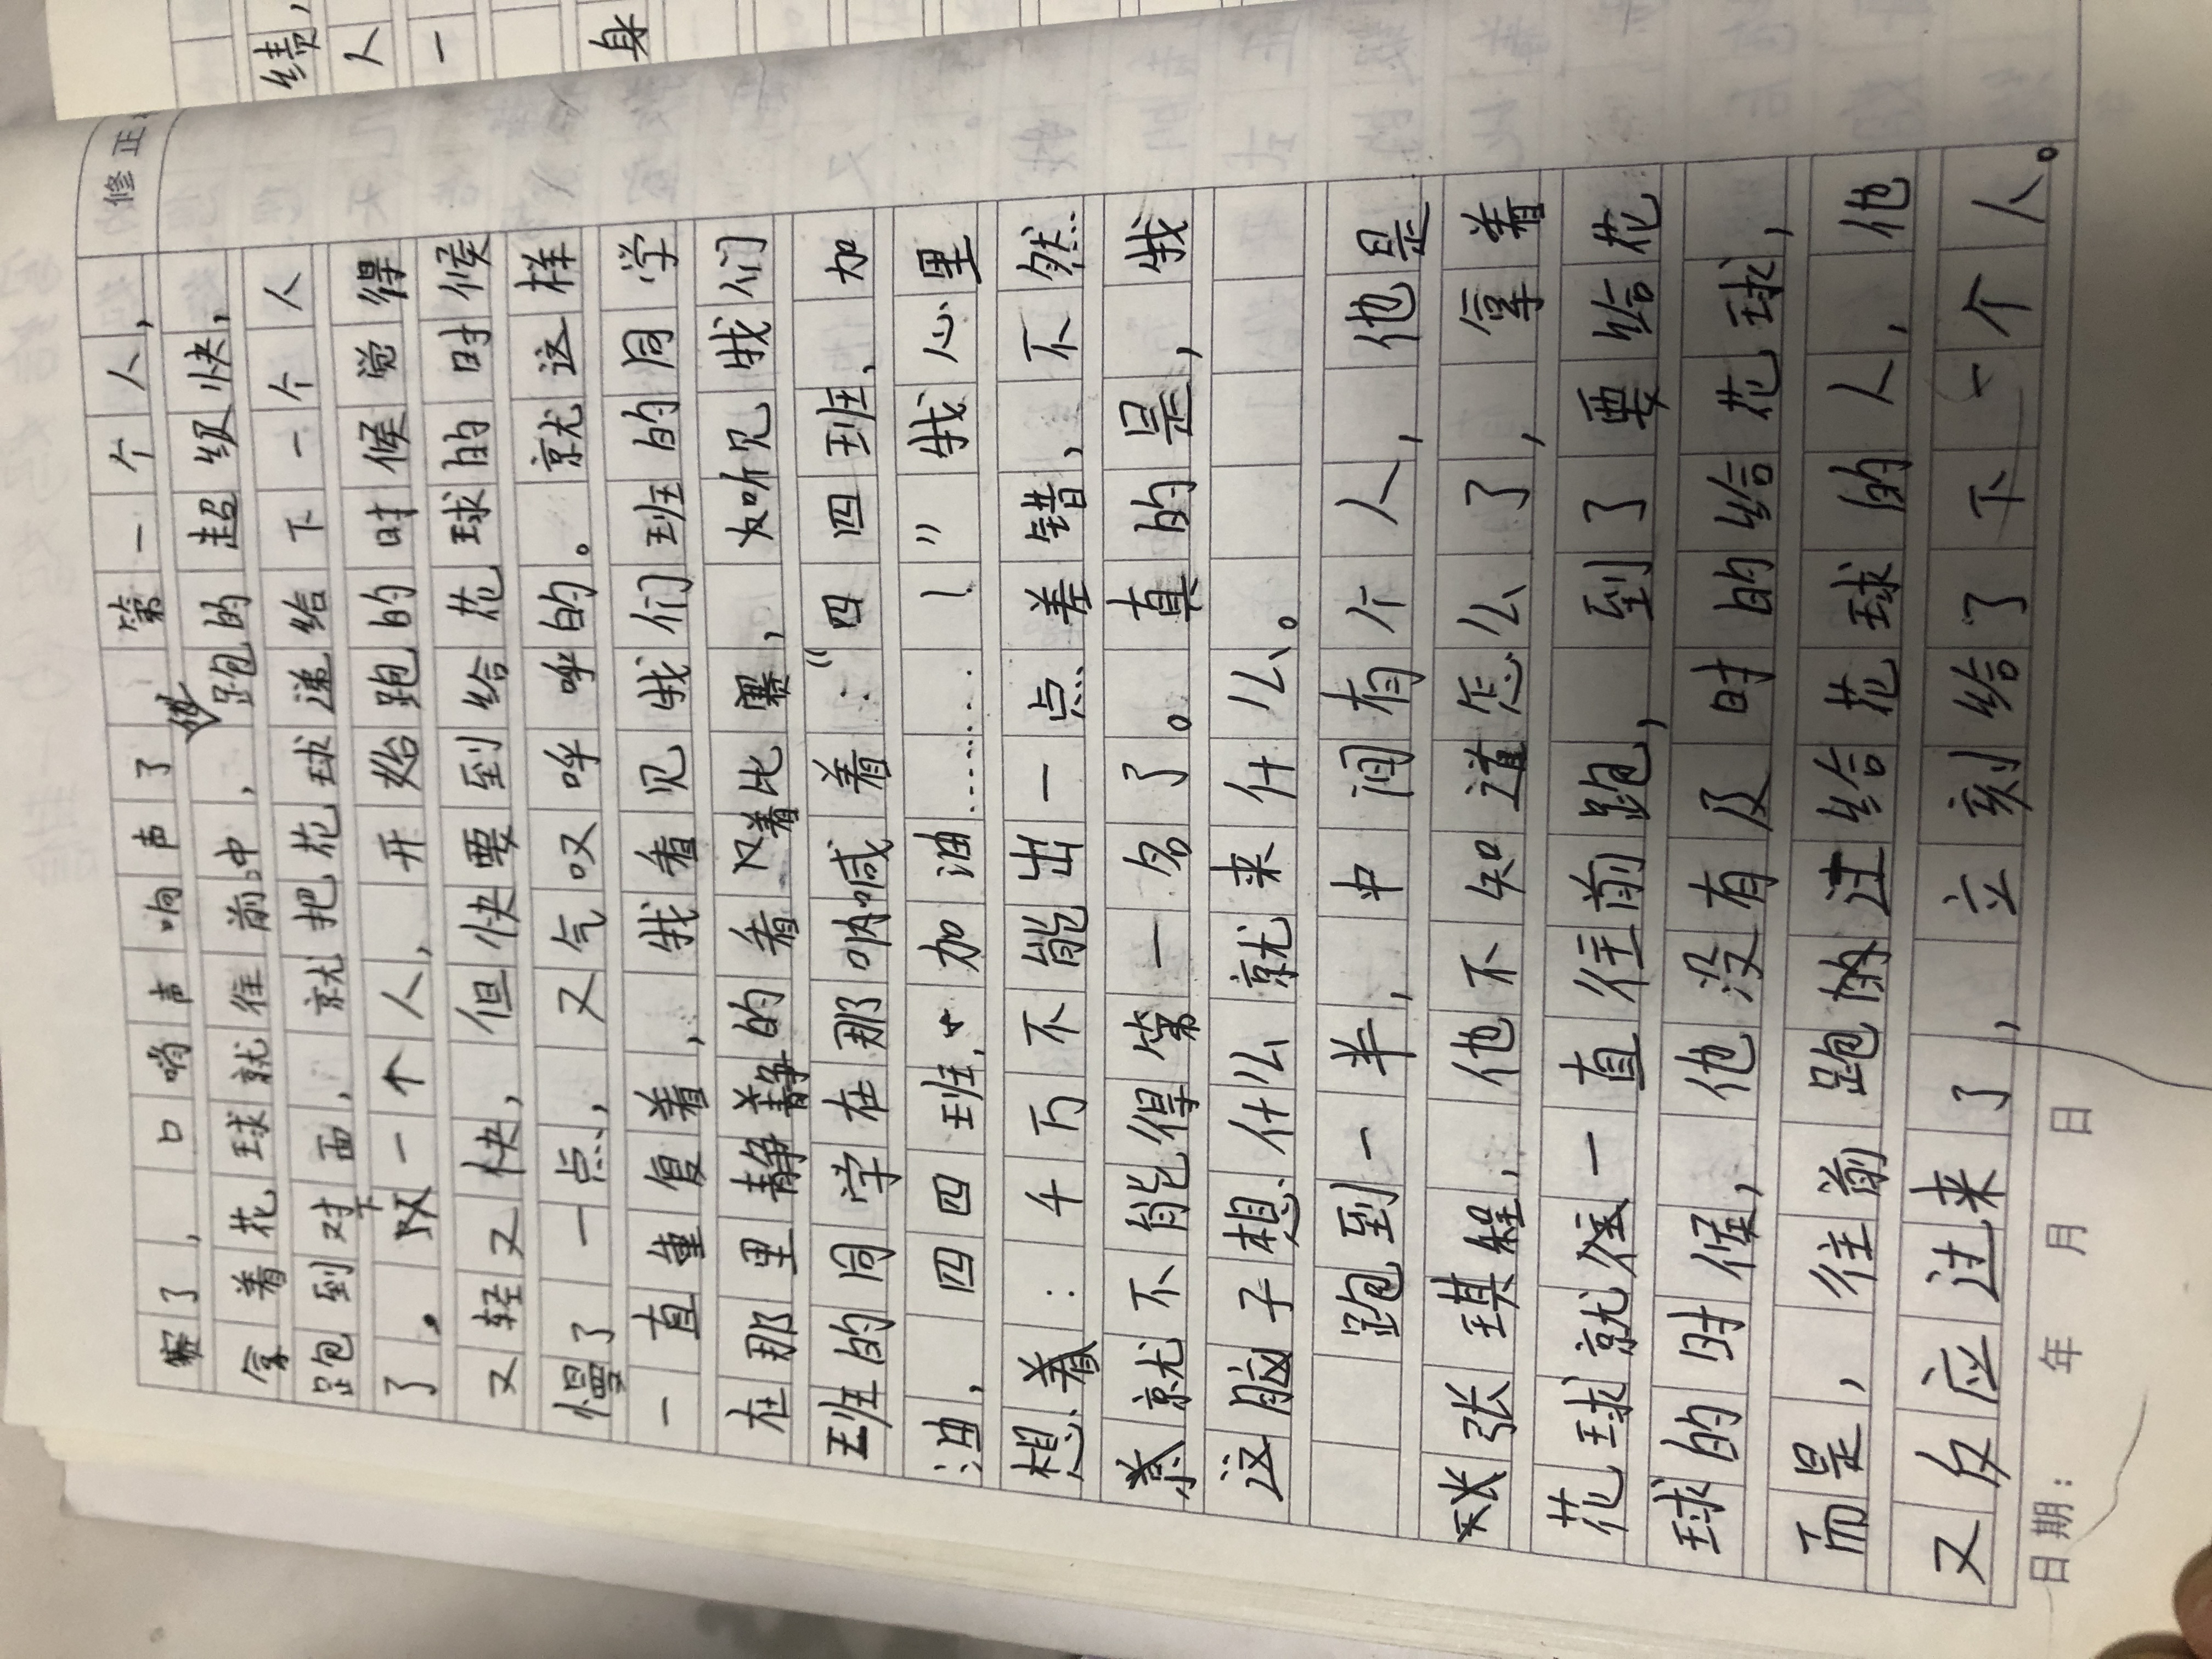 绩,
人
一
身
修正
赛了,口哨声响声了第一个人,
拿着花球就往前冲,他跑的超级快,
跑到对面,就把花球递给下一个人
了。下一个人,开始跑的时候觉得
又轻又快,但快要到给花球的时候
慢了一点,又气叹呼呼的。就这样
一直重复着,我看见我们班的同学
在那里静静的看着比赛,如听见我们
班的同学在那呐喊着:“四四班,加
油,四四班,加油……!”我心里
想着:千万不能出一点差错,不然
就不能得第一名了。真的是,我
这脑子想什么就来什么。
跑到一半,中间有个人,他是
张琪程,他不知道怎么了,拿着
花球就往一直往前跑,到了要给花
球的时候,他没有及时的给花球,
而是,往前跑的过给花球的人,他
又反应过来了,立刻给了下一个人。
日期: 年 月 日